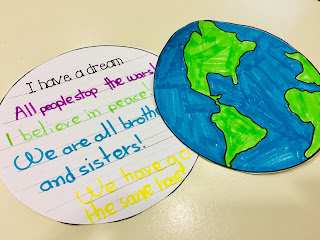 I have a dream
All people stop the wars!
I believe in peace!
We are all brothe
and sisters!
We have go
the same